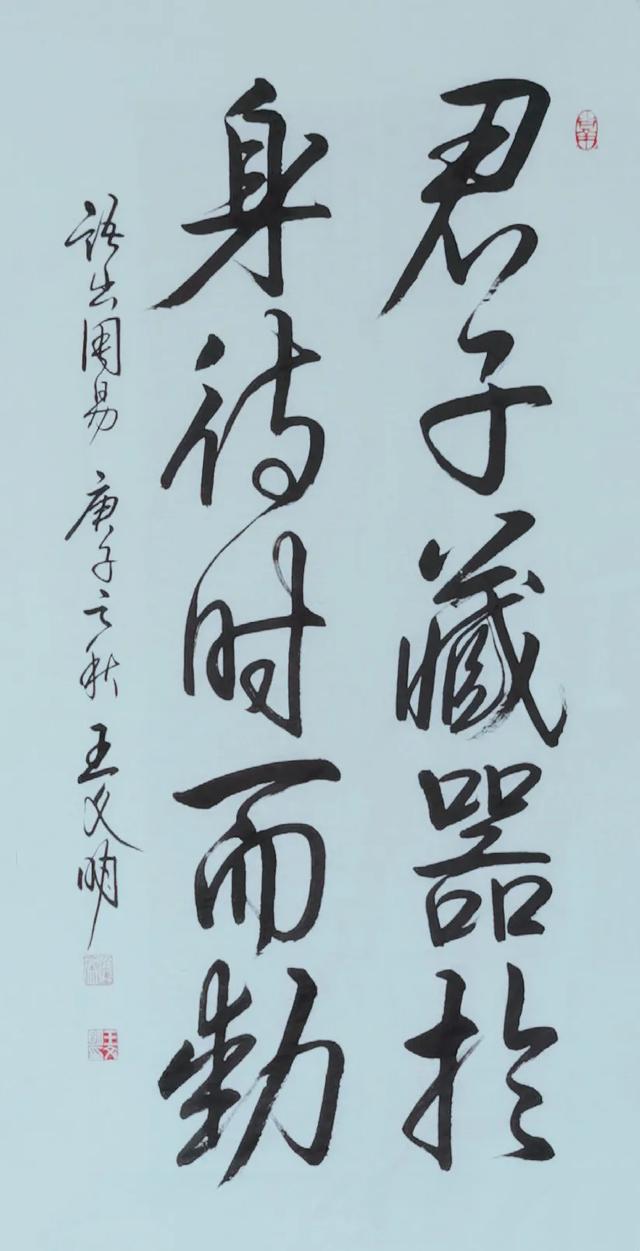 君子藏器於
身待时而動
語出周易 庚子之秋 王文明